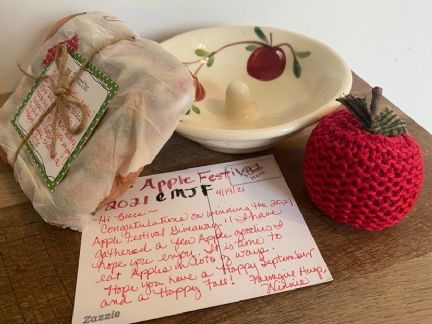 Apple Festival
2021 @ MJF 9/19/21
Hi Becca ~
Congratulations on winning the 2021
Apple Festival Giveaway!! I have
gathered a few Apple goodies I
hope you enjoy. It is time to
eat Apples in lots of ways.
Hope you have a Happy September
and a Happy Fall! Farmgirl Hugs,
Winnie
Zazzle